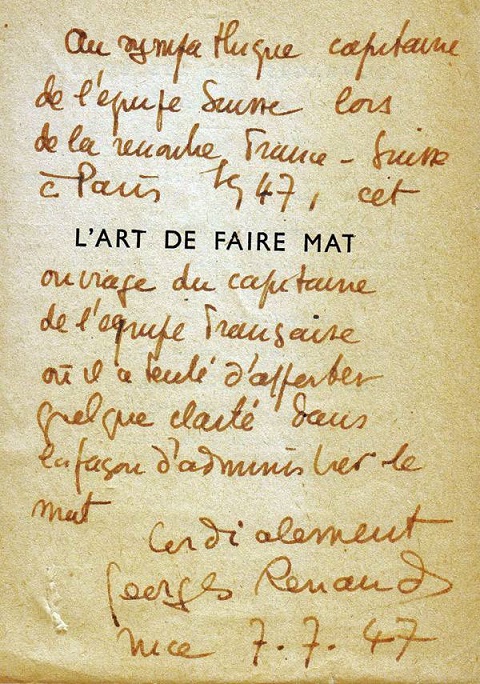 Au sympathique capitaine
de l'équipe Suisse lors
de la rencontre France - Suisse
à Paris 1947, cet
L'ART DE FAIRE MAT
ouvrage du capitaine
de l'équipe Française
où il a tenté d'apporter
quelque clarté dans
la façon d'administrer le
mat
Cordialement
Georges Renaud
Nice 7.7.47